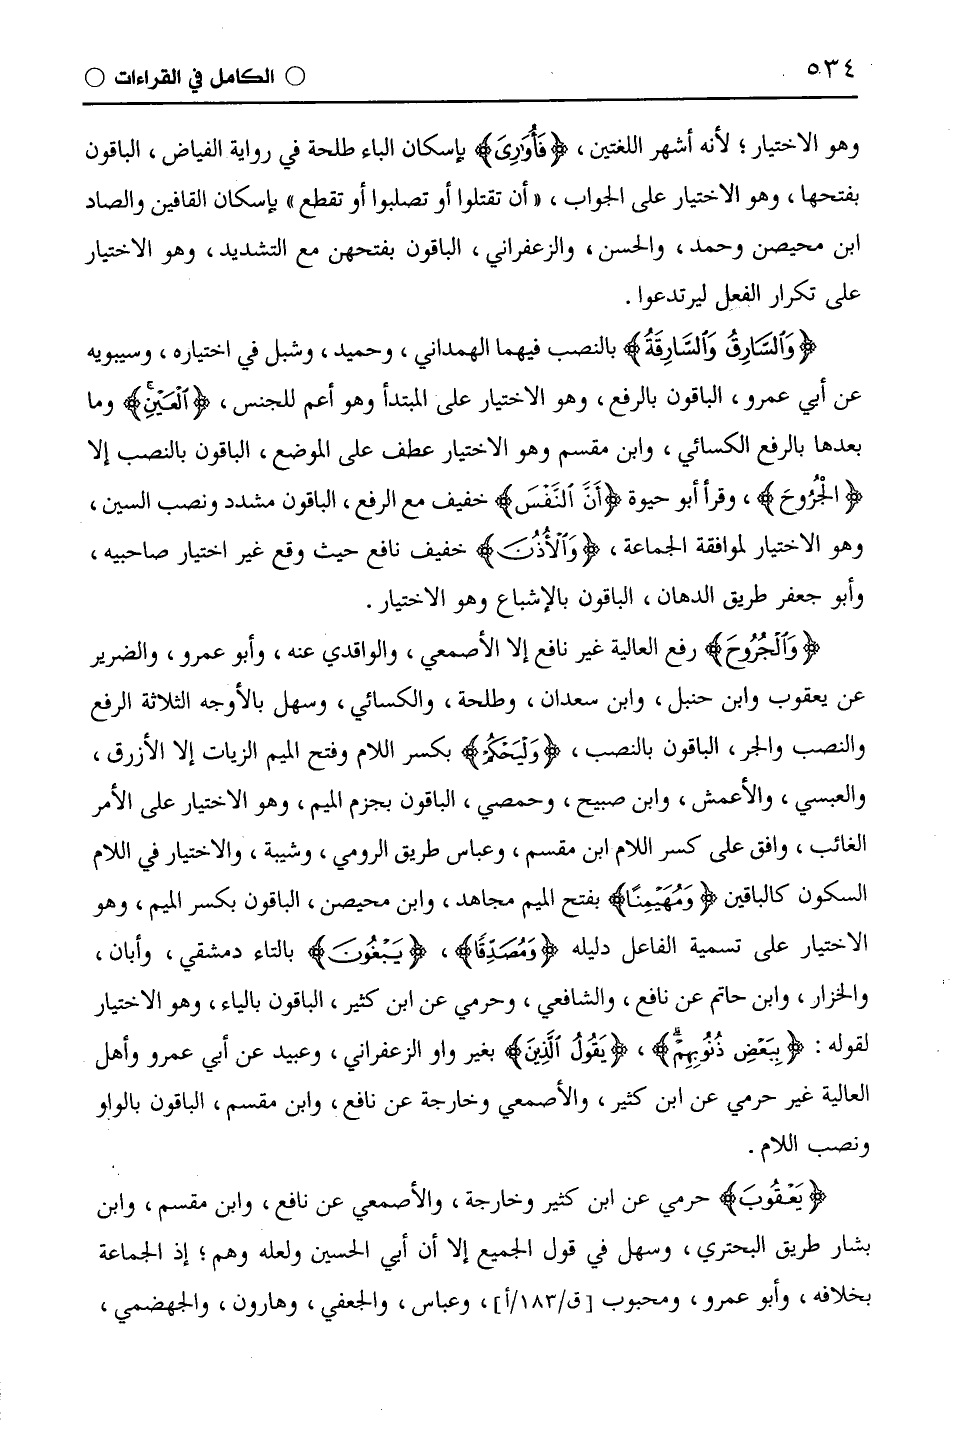 ٥٣٤ ○ الكامل في القراءات ○
وهو الاختيار ؛ لأنه أشهر اللغتين ، ﴿فَأُوَارِىَ﴾ بإسكان الياء طلحة في رواية الفياض ، الباقون
بفتحها ، وهو الاختيار على الجواب ، « أن تقتلوا أو تصلبوا أو تقطع » بإسكان القافين والصاد
ابن محيصن وحمد ، والحسن ، والزعفراني ، الباقون بفتحهن مع التشديد ، وهو الاختيار
على تكرار الفعل ليرتدعوا .
﴿وَٱلسَّارِقُ وَٱلسَّارِقَةُ﴾ بالنصب فيهما الهمداني ، وحميد ، وشبل في اختياره ، وسيبويه
عن أبي عمرو ، الباقون بالرفع ، وهو الاختيار على المبتدأ وهو أعم للجنس ، ﴿ٱلۡعَيۡنِ﴾ وما
بعدها بالرفع الكسائي ، وابن مقسم وهو الاختيار عطف على الموضع ، الباقون بالنصب إلا
﴿الجُرُوحَ﴾ ، وقرأ أبو حيوة ﴿أَنَّ ٱلنَّفۡسَ﴾ خفيف مع الرفع ، الباقون مشدد ونصب السين ،
وهو الاختيار لموافقة الجماعة ، ﴿وَٱلۡأُذُنَ﴾ خفيف نافع حيث وقع غير اختيار صاحبيه ،
وأبو جعفر طريق الدهان ، الباقون بالإشباع وهو الاختيار .
﴿وَٱلۡجُرُوحَ﴾ رفع العالية غير نافع إلا الأصمعي ، والواقدي عنه ، وأبو عمرو ، والضرير
عن يعقوب وابن حنبل ، وابن سعدان ، وطلحة ، والكسائي ، وسهل بالأوجه الثلاثة الرفع
والنصب والجر ، الباقون بالنصب ، ﴿وَلۡيَحۡكُمۡ﴾ بكسر اللام وفتح الميم الزيات إلا الأزرق ،
والعبسي ، والأعمش ، وابن صبيح ، وحمصي ، الباقون بجزم الميم ، وهو الاختيار على الأمر
الغائب ، وافق على كسر اللام ابن مقسم ، وعباس طريق الرومي ، وشيبة ، والاختيار في اللام
السكون كالباقين ﴿وَمُهَيۡمِنًا﴾ بفتح الميم مجاهد ، وابن محيصن ، الباقون بكسر الميم ، وهو
الاختيار على تسمية الفاعل دليله ﴿وَمُصَدِّقًا﴾ ، ﴿يَبۡغُونَ﴾ بالتاء دمشقي ، وأبان ،
والخزار ، وابن حاتم عن نافع ، والشافعي ، وحرمي عن ابن كثير ، الباقون بالياء ، وهو الاختيار
لقوله : ﴿بِبَعۡضِ ذُنُوبِهِمۡۗ﴾ ، ﴿يَقُولُ ٱلَّذِينَ﴾ بغير واو الزعفراني ، وعبيد عن أبي عمرو وأهل
العالية غير حرمي عن ابن كثير ، والأصمعي وخارجة عن نافع ، وابن مقسم ، الباقون بالواو
ونصب اللام .
﴿يَعۡقُوبَ﴾ حرمي عن ابن كثير وخارجة ، والأصمعي عن نافع ، وابن مقسم ، وابن
بشار طريق البحتري ، وسهل في قول الجميع إلا أن أبي الحسين ولعله وهم ؛ إذ الجماعة
بخلافه ، وأبو عمرو ، ومحبوب [ق/١٨٣/أ] ، وعباس ، والجعفي ، وهارون ، والجهضمي ،